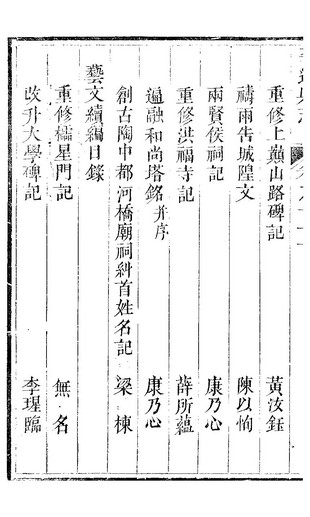 重修上巔山路碑記 黃汝鈺
禱雨告城隍文 陳以恂
兩賢侯祠記 康乃心
重修洪福寺記 薛所蘊
逼融和尚塔銘并序 康乃心
創古陶中都河橋廟祠糾首姓名記 梁棟
藝文續編目錄
重修櫺星門記 無名
改升大學碑記 李瑆臨